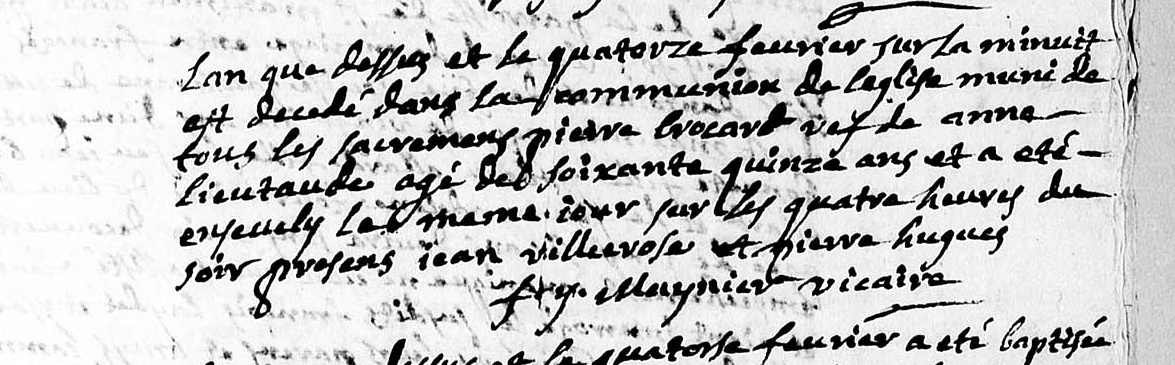 lan que dessus et le quatorze fevrier sur la minuit
est decedé dans la communion de leglise muni de
tous les sacremens pierre brocard vef de anne
lieutaude agé de soixante quinze ans et a eté
ensevely le meme iour sur les quatre heures du
soir presens iean villecrose et pierre hugues
Maynier vicaire
dessus et le quatorse fevrier a eté baptisée